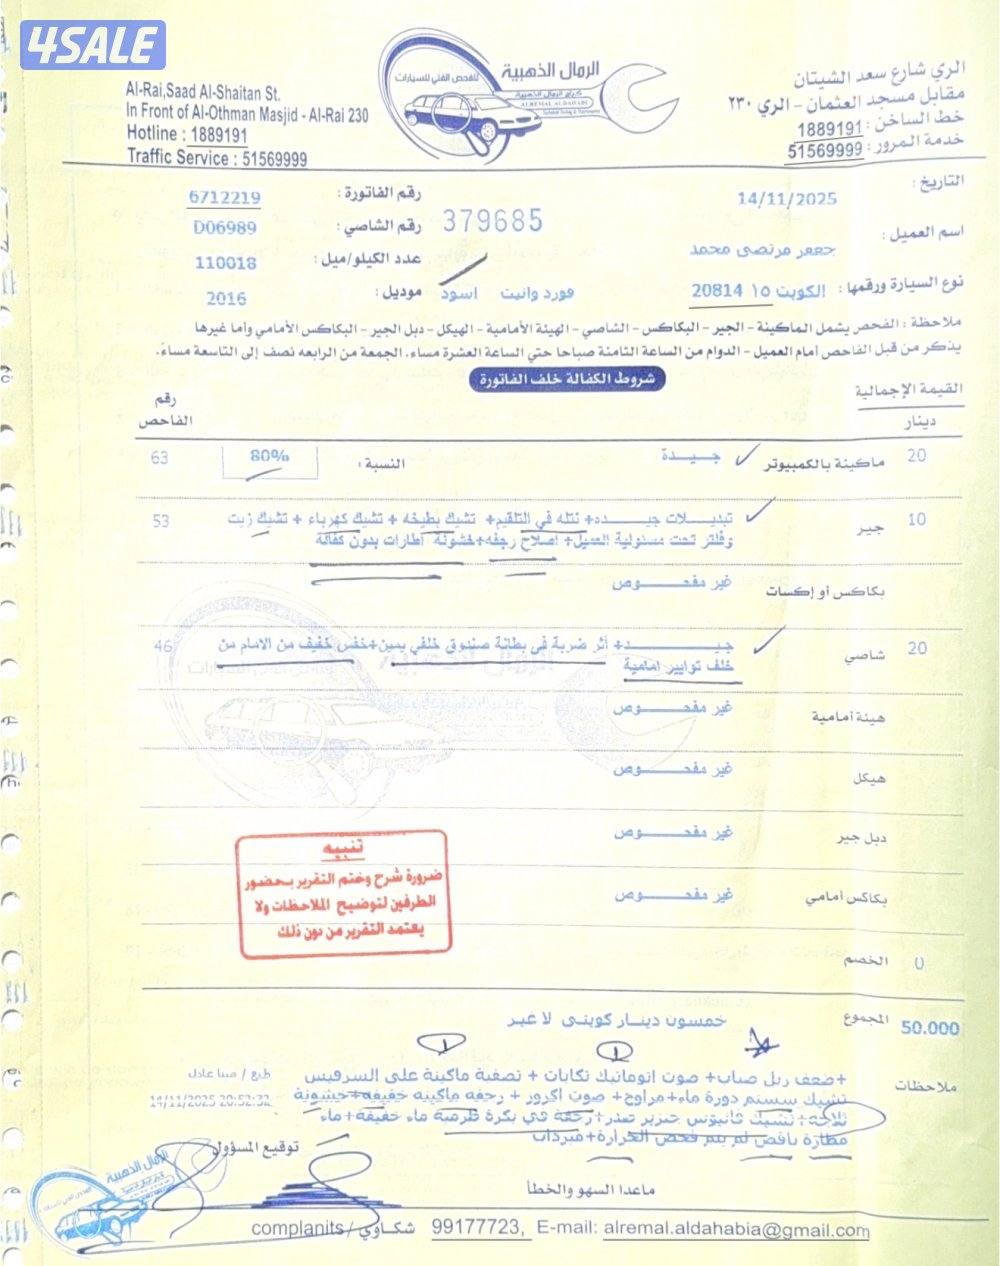 4SALE
Al-Rai,Saad Al-Shaitan St.
In Front of Al-Othman Masjid - Al-Rai 230
Hotline : 1889191
Traffic Service : 51569999
الرمال الذهبية
للفحص الفني للسيارات
كراج الرمال الذهبية
ALREMAL ALDAHABI
الري شارع سعد الشيتان
مقابل مسجد العثمان - الري ٢٣٠
خط الساخن : 1889191
خدمة المرور : 51569999
التاريخ : 14/11/2025
رقم الفاتورة : 6712219
379685
رقم الشاصي : D06989
اسم العميل : جعفر مرتضى محمد
عدد الكيلو/ميل : 110018
نوع السيارة ورقمها : الكويت ١٥ 20814 فورد وانيت اسود
موديل : 2016
ملاحظة : الفحص يشمل الماكينة - الجير - البكاكس - الشاصي - الهيئة الأمامية - الهيكل - دبل الجير - البكاكس الأمامي وأما غيرها
يذكر من قبل الفاحص أمام العميل - الدوام من الساعة الثامنة صباحا حتي الساعة العشرة مساء، الجمعة من الرابعه نصف إلى التاسعة مساءً.
شروط الكفالة خلف الفاتورة
القيمة الإجمالية
دينار
رقم الفاحص
20 ماكينة بالكمبيوتر جيدة النسبة : 80% 63
10 جير تبديلات جيده+ نتله في التلقيم+ تشيك بطيخه + تشيك كهرباء + تشيك زيت 53
وفلتر تحت مسئولية العميل+ اصلاح رجفه+خشونة اطارات بدون كفالة
بكاكس أو إكسات غير مفحوص
20 شاصي جيد+ أثر ضربة في بطانة صندوق خلفي يمين+خفس خفيف من الامام من 46
خلف توايير امامية
هيئة أمامية غير مفحوص
هيكل غير مفحوص
دبل جير غير مفحوص
بكاكس أمامي غير مفحوص
تنبيه
ضرورة شرح وختم التقرير بحضور
الطرفين لتوضيح الملاحظات ولا
يعتمد التقرير من دون ذلك
الخصم 0
المجموع 50.000
خمسون دينار كويتى لا غير
ملاحظات
+ضعف ربل صباب+ صوت اتوماتيك تكايات + تصفية ماكينة على السرفيس
تشيك سستم دورة ماء+ مراوح+ صوت اكزوز + رجفه ماكينه خفيفه+خشونة
ثلاجه+ تشيك فانيوس جنزير صدر+ رجفة في بكرة طرمبة ماء خفيفة+ ماء
مطارة ناقص لم يتم فحص الحرارة+ مبردات
طبع / مينا عادل
14/11/2025 20:52:32
توقيع المسؤول
ماعدا السهو والخطأ
الرمال الذهبية
complanits / شكاوي 99177723, E-mail: alremal.aldahabia@gmail.com